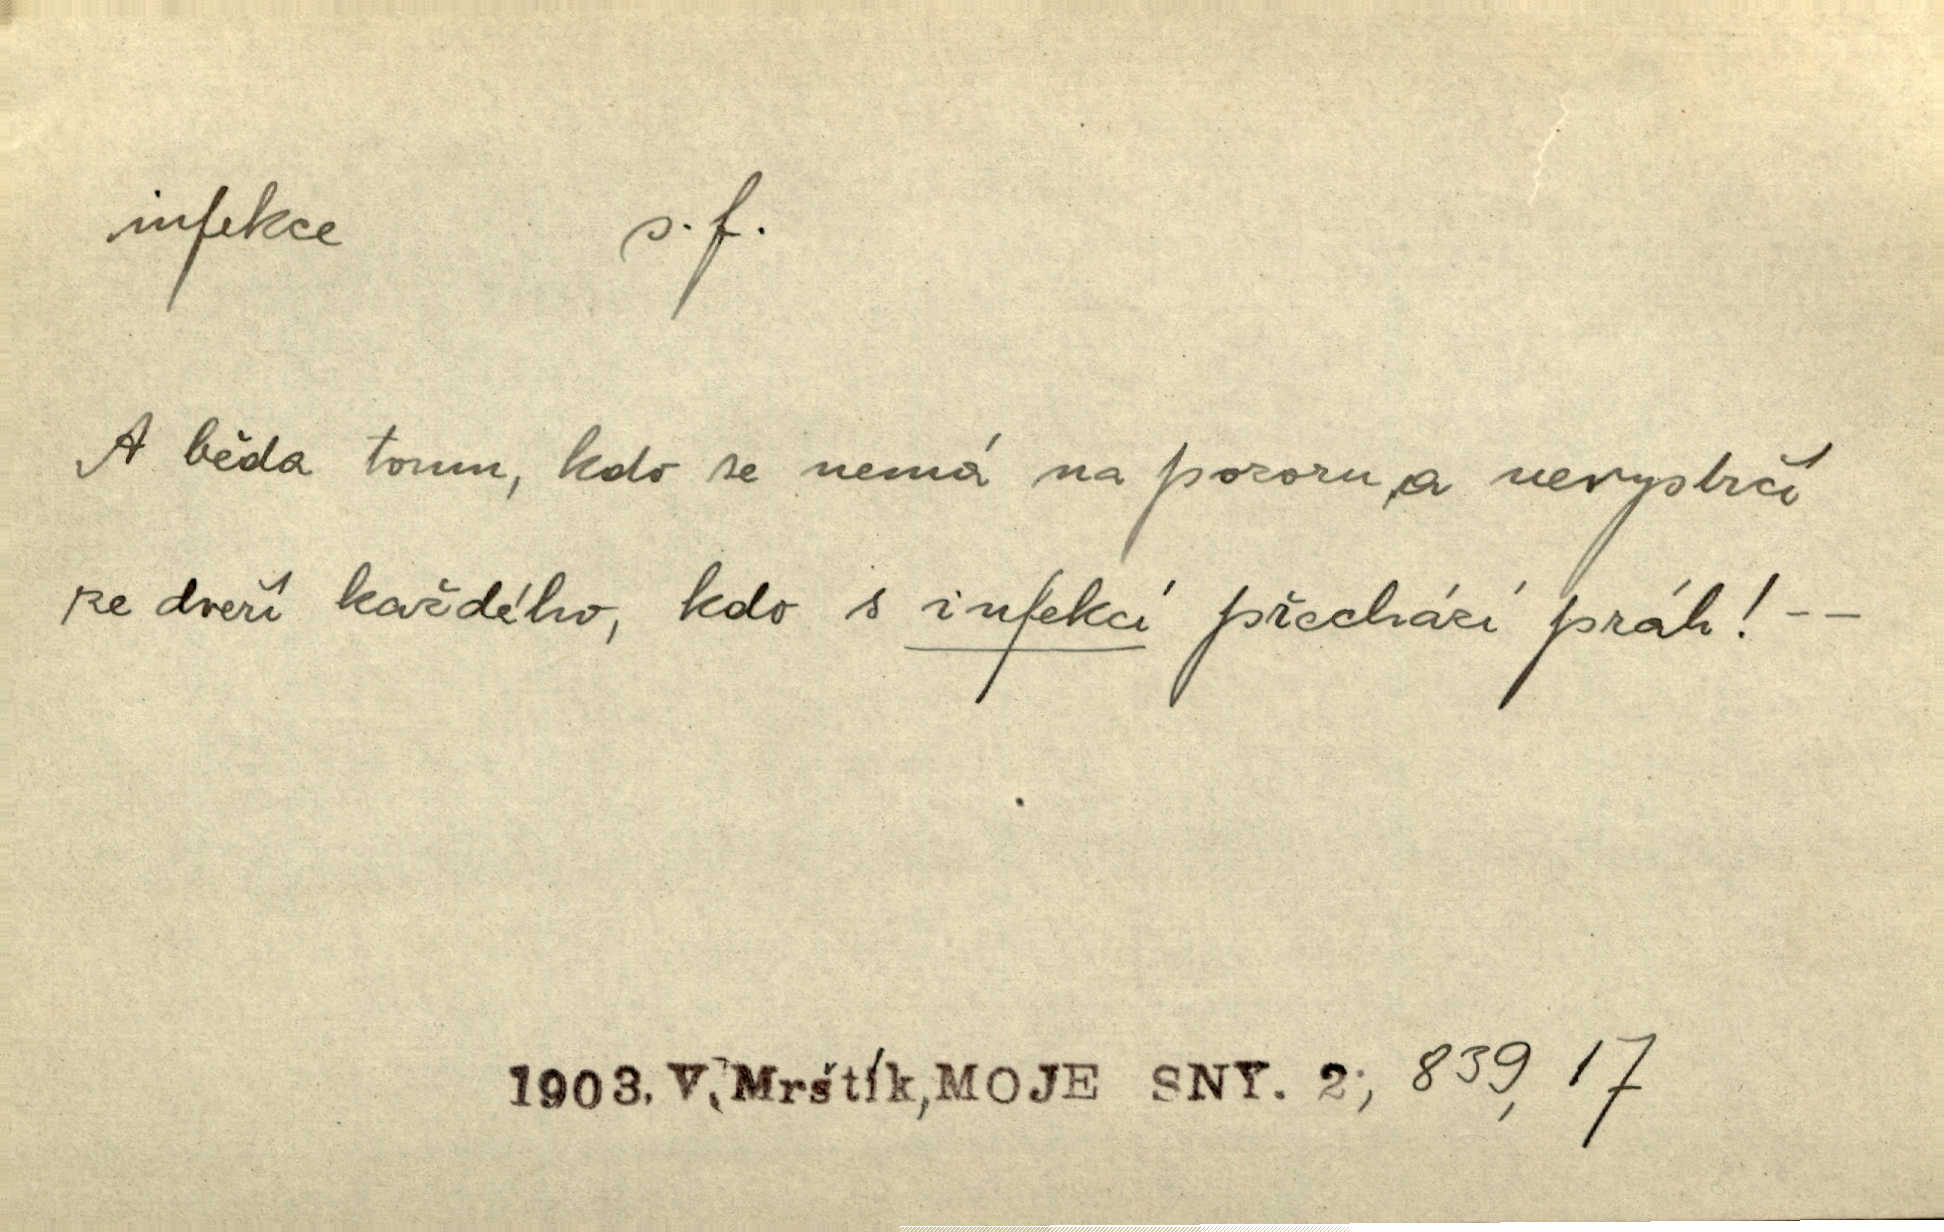 infekce s. f.
A běda tomu, kdo se nemá na pozoru, a nevystrčí
ze dveří každého, kdo s infekcí přechází práh! --
1903. V. Mrštík, MOJE SNY. 2; 839, 17